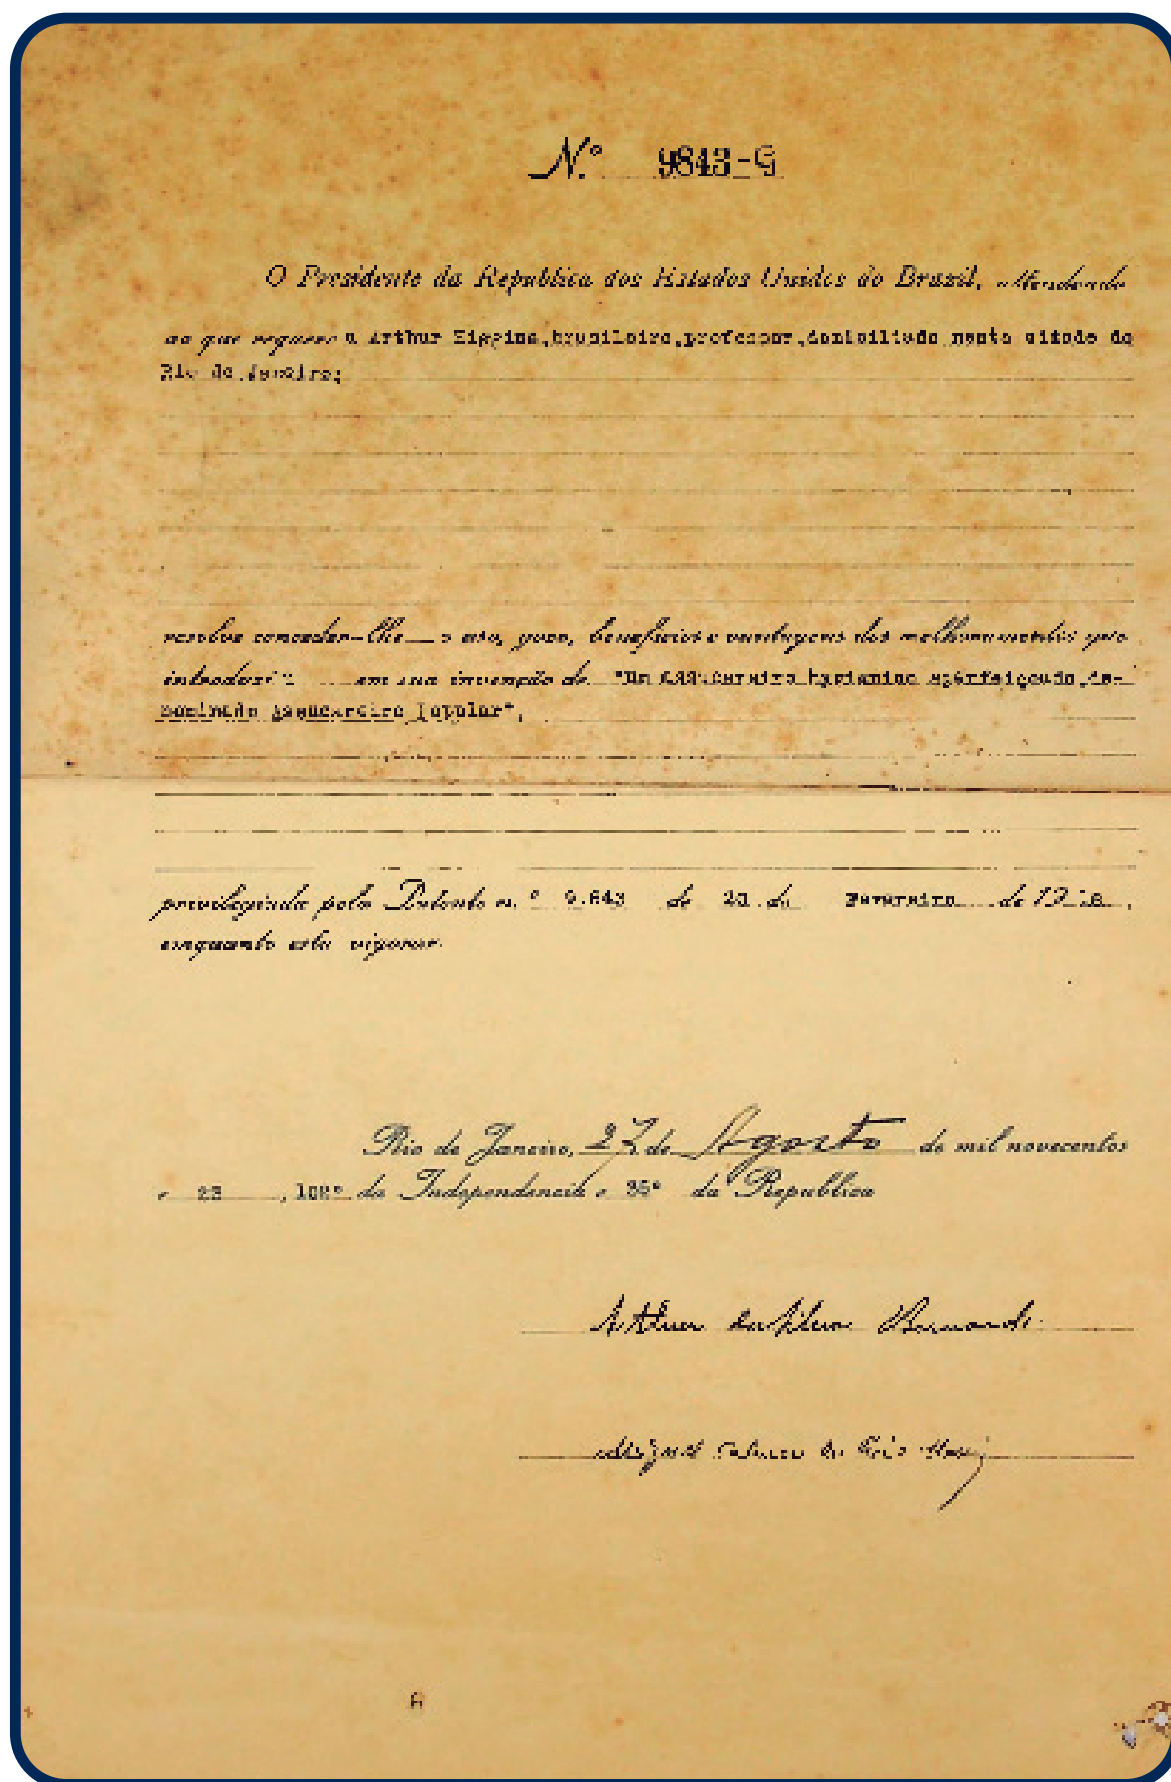 N.º 9843-G
O Presidente da Republica dos Estados Unidos do Brazil, attendendo
ao que requereu Arthur Higgins, brasileiro, professor, domiciliado nesta cidade do
Rio de Janeiro;
resolve conceder-lhe o uso, gozo, beneficios e vantagens dos melhoramentos que
introduziu em sua invenção de "Um assucareiro hygienico aperfeiçoado, de-
nominado Assucareiro Popular",
privilegiada pela Patente n.º 9.843 de 20 de Fevereiro de
emquanto esta vigorar.
Rio de Janeiro, 27 de Agosto de mil novecentos
e 23, 102º da Independencia e 35º da Republica
Arthur da Silva Bernardes
Miguel Calmon du Pin e